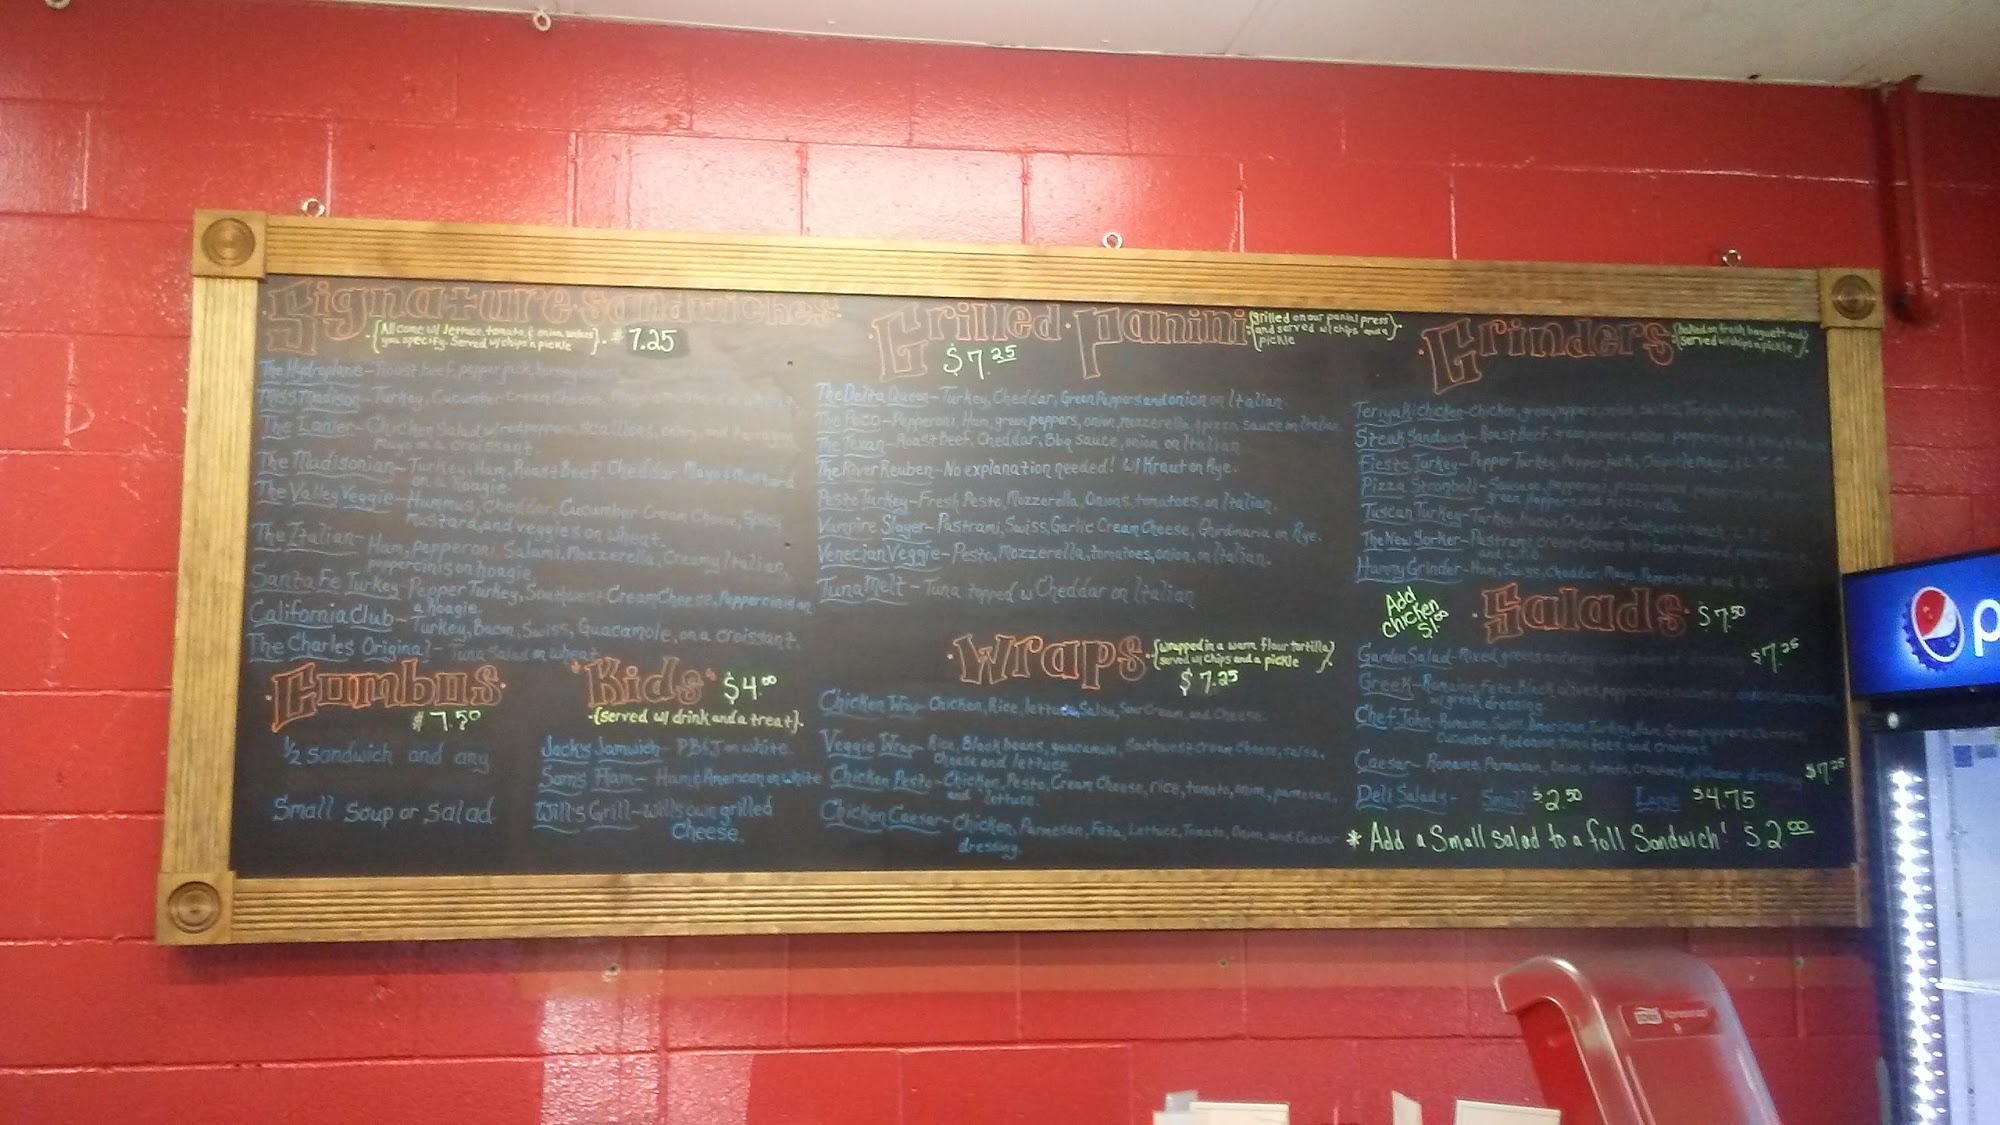 Signature Sandwiches
{All come w/ lettuce, tomato, & onion unless
you specify. Served w/ chips n pickle}
7.25
The Hydroplane - Roast Beef, pepper jack,
Miss Madison - Turkey, Cucumber Cream Cheese,
The Lanier - Chicken Salad w/ red peppers, scallions, celery, and tarragon
Mayo on a croissant
The Madisonian - Turkey, Ham, Roast Beef, Cheddar, Mayo & Mustard
on a hoagie
The Valley Veggie - Hummus, Cheddar, Cucumber Cream Cheese, Spicy
Mustard, and veggies on wheat
The Italian - Ham, Pepperoni, Salami, Mozzerella, Creamy Italian,
pepporcinis on hoagie
Santa Fe Turkey - Pepper Turkey, Southwest Cream Cheese, Pepporcinis on
a hoagie
California Club - Turkey, Bacon, Swiss, Guacamole, on a croissant.
The Charles Original - Tuna Salad on wheat
Combos
7.50
1/2 Sandwich and any
Small Soup or Salad
"Kids" $4.00
{served w/ drink and a treat}
Jack's Jamwich - PB&J on white
Sam's Ham - Ham & American on white
Will's Grill - Will's own grilled
Cheese.
Grilled Panini
{grilled on our panini press
and served w/ chips and a
pickle}
$7.25
The Delta Queen - Turkey, Cheddar, Green Peppers and onion on Italian
The Paco - Pepperoni, Ham, green peppers, onion, mozzerella, & pizza sauce on Italian
The Texan - Roast Beef, Cheddar, Bbq Sauce, onion on Italian
The River Reuben - No explanation needed! w/ Kraut on Rye.
Pesto Turkey - Fresh Pesto, Mozzerella, Onions, tomatoes, on Italian.
Vampire Slayer - Pastrami, Swiss, Garlic Cream Cheese, on Rye.
Venecian Veggie - Pesto, Mozzerella, tomatoes, onion, on Italian.
Tuna Melt - Tuna topped w Cheddar on Italian
Wraps
{wrapped in a warm flour tortilla
served w/ chips and a pickle}
$7.25
Chicken Wrap - Chicken, Rice, lettuce, Salsa, Sour Cream, and Cheese.
Veggie Wrap - Rice, Black beans, guacamole, Southwest Cream Cheese, salsa,
cheese and lettuce
Chicken Pesto - Chicken, Pesto, Cream Cheese, rice, tomato, onion, parmesan,
and lettuce.
Chicken Caesar - Chicken, Parmesan, Feta, Lettuce, Tomato, Onion, and Caesar
dressing.
Grinders
{baked on fresh baguett and
served w/ chips n pickle}
Teriyaki Chicken - Chicken, green peppers, onion, Swiss, Teriyaki, and Mayo
Steak Sandwich - Roast Beef, green peppers, onion,
Fiesta Turkey - Pepper Turkey, Pepper jack, Chipotle mayo,
Pizza Stromboli - Sausage, Pepperoni,
green peppers and mozzerella
Tuscan Turkey - Turkey, Bacon, Cheddar,
The New Yorker - Pastrami, Cream Cheese
Hammy Grinder - Ham, Swiss, Cheddar, Mayo,
Add
Chicken
$1.00
Salads $7.50
Garden Salad - Mixed greens $7.25
Greek - Romaine, Feta, Black olives,
w/ greek dressing
Chef John - Romaine, Swiss, American, Turkey, Ham, Green peppers,
Cucumber, tomatoes, and croutons
Caesar - Romaine, Parmesan, Onion, tomato, Croutons, w/ Caesar dressing $7.25
Deli Salads - Small $2.50 Large $4.75
* Add a Small Salad to a full Sandwich! $2.00